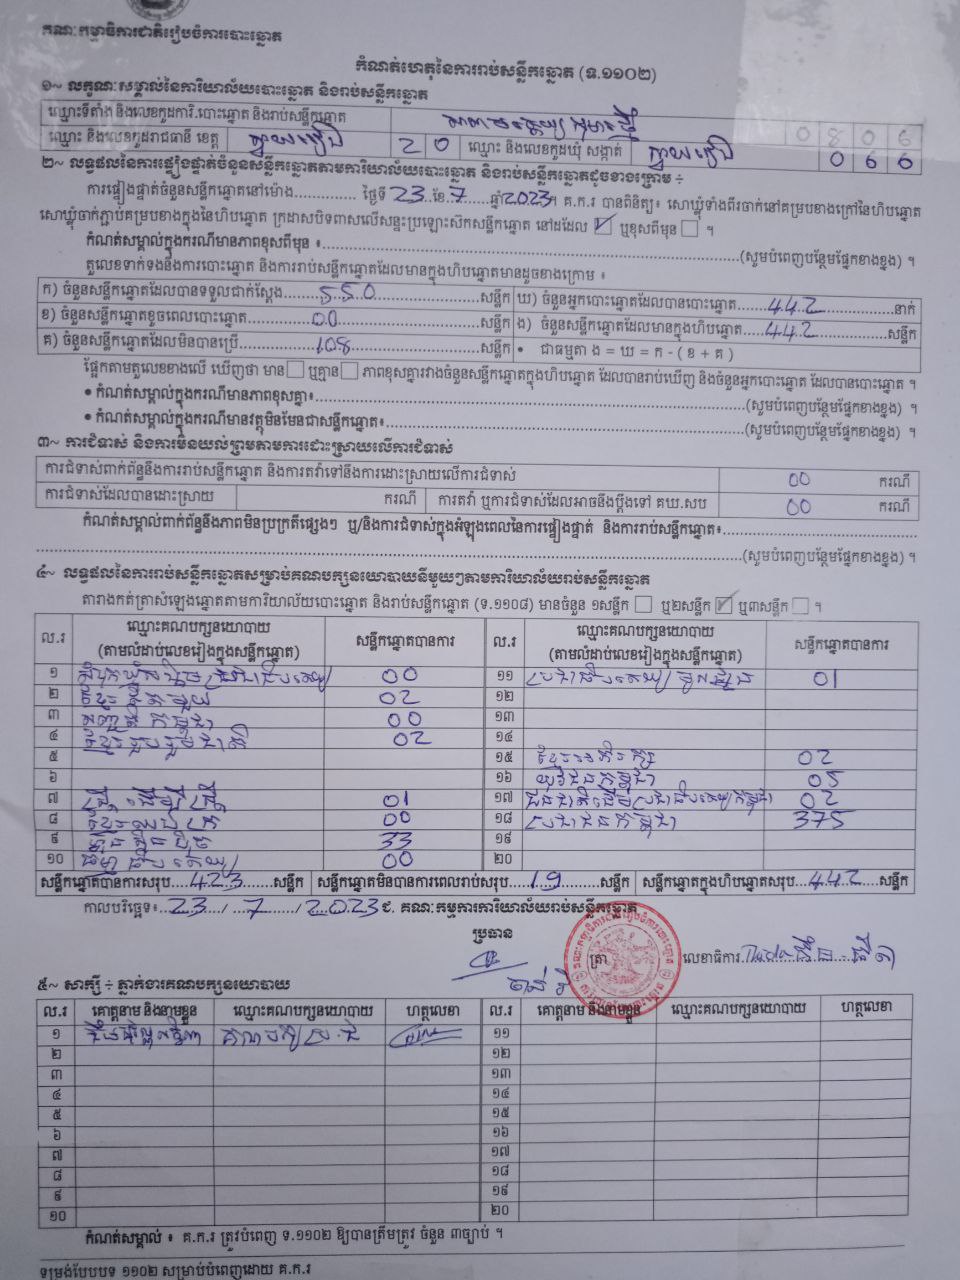 គណៈកម្មាធិការជាតិរៀបចំការបោះឆ្នោត
កំណត់ហេតុនៃការរាប់សន្លឹកឆ្នោត (ទ.១១០២)
១~ លក្ខណៈសម្គាល់នៃការិយាល័យបោះឆ្នោត និងរាប់សន្លឹកឆ្នោត
ឈ្មោះទីតាំង និងលេខកូដការិ.បោះឆ្នោត និងរាប់សន្លឹកឆ្នោត 0806
ឈ្មោះ និងលេខកូដរាជធានី ខេត្ត ស្វាយរៀង 20 ឈ្មោះ និងលេខកូដឃុំ សង្កាត់ ស្វាយរៀង 066
២~ លទ្ធផលនៃការផ្ទៀងផ្ទាត់ចំនួនសន្លឹកឆ្នោតតាមការិយាល័យបោះឆ្នោត និងរាប់សន្លឹកឆ្នោតដូចខាងក្រោម ÷
ការផ្ទៀងផ្ទាត់ចំនួនសន្លឹកឆ្នោតនៅម៉ោង............... ថ្ងៃទី 23 ..ខែ. 7 ......ឆ្នាំ 2023 ។ គ.ក.រ បានពិនិត្យ៖ សោឃ្លុំទាំងពីរចាក់នៅគម្របខាងក្រៅនៃហិបឆ្នោត
សោឃ្លុំចាក់ភ្ជាប់គម្របខាងក្នុងនៃហិបឆ្នោត ក្រដាសបិទពាសលើសន្ទះប្រឡោះសឹកសន្លឹកឆ្នោត នៅដដែល ☑ ឬខុសពីមុន ☐ ។
កំណត់សម្គាល់ក្នុងករណីមានភាពខុសពីមុន ៖......................................................(សូមបំពេញបន្ថែមផ្នែកខាងខ្នង) ។
តួលេខទាក់ទងនឹងការបោះឆ្នោត និងការរាប់សន្លឹកឆ្នោតដែលមានក្នុងហិបឆ្នោតមានដូចខាងក្រោម ៖
ក) ចំនួនសន្លឹកឆ្នោតដែលបានទទួលជាក់ស្ដែង...... 550 ......សន្លឹក ឃ) ចំនួនអ្នកបោះឆ្នោតដែលបានបោះឆ្នោត...... 442 ......នាក់
ខ) ចំនួនសន្លឹកឆ្នោតខូចពេលបោះឆ្នោត...... 00 ......សន្លឹក ង) ចំនួនសន្លឹកឆ្នោតដែលមានក្នុងហិបឆ្នោត...... 442 ......សន្លឹក
គ) ចំនួនសន្លឹកឆ្នោតដែលមិនបានប្រើ...... 108 ......សន្លឹក • ជាធម្មតា ង = ឃ = ក - ( ខ + គ )
ផ្អែកតាមតួលេខខាងលើ ឃើញថា មាន ☐ ឬគ្មាន ☐ ភាពខុសគ្នារវាងចំនួនសន្លឹកឆ្នោតក្នុងហិបឆ្នោត ដែលបានរាប់ឃើញ និងចំនួនអ្នកបោះឆ្នោត ដែលបានបោះឆ្នោត ។
• កំណត់សម្គាល់ក្នុងករណីមានភាពខុសគ្នា៖......................................................(សូមបំពេញបន្ថែមផ្នែកខាងខ្នង) ។
• កំណត់សម្គាល់ក្នុងករណីមានវត្ថុមិនមែនជាសន្លឹកឆ្នោត៖......................................................(សូមបំពេញបន្ថែមផ្នែកខាងខ្នង) ។
៣~ ការជំទាស់ និងការមិនយល់ព្រមតាមការដោះស្រាយលើការជំទាស់
ការជំទាស់ពាក់ព័ន្ធនឹងការរាប់សន្លឹកឆ្នោត និងការតវ៉ាទៅនឹងការដោះស្រាយលើការជំទាស់ 00 ករណី
ការជំទាស់ដែលបានដោះស្រាយ ករណី ការតវ៉ា ឬការជំទាស់ដែលអាចនឹងប្ដឹងទៅ គឃ.សប 00 ករណី
កំណត់សម្គាល់ពាក់ព័ន្ធនឹងភាពមិនប្រក្រតីផ្សេងៗ ឬ/និងការជំទាស់ក្នុងអំឡុងពេលនៃការផ្ទៀងផ្ទាត់ និងការរាប់សន្លឹកឆ្នោត៖.............................
......................................................(សូមបំពេញបន្ថែមផ្នែកខាងខ្នង) ។
៤~ លទ្ធផលនៃការរាប់សន្លឹកឆ្នោតសម្រាប់គណបក្សនយោបាយនីមួយៗតាមការិយាល័យរាប់សន្លឹកឆ្នោត
តារាងកត់ត្រាសំឡេងឆ្នោតតាមការិយាល័យបោះឆ្នោត និងរាប់សន្លឹកឆ្នោត (ទ.១១០៨) មានចំនួន ១សន្លឹក ☐ ឬ២សន្លឹក ☑ ឬ៣សន្លឹក ☐ ។
ល.រ ឈ្មោះគណបក្សនយោបាយ (តាមលំដាប់លេខរៀងក្នុងសន្លឹកឆ្នោត) សន្លឹកឆ្នោតបានការ ល.រ ឈ្មោះគណបក្សនយោបាយ (តាមលំដាប់លេខរៀងក្នុងសន្លឹកឆ្នោត) សន្លឹកឆ្នោតបានការ
១ សំបុកឃ្មុំសង្គមប្រជាធិបតេយ្យ 00 ១១ ប្រជាធិបតេយ្យមូលដ្ឋាន 01
២ ខ្មែរតែមួយ 02 ១២
៣ សញ្ជាតិកម្ពុជា 00 ១៣
៤ ខ្មែររួបរួមជាតិ 02 ១៤
៥ ១៥ ខ្មែរអភិរក្ស 02
៦ ១៦ យុវជនកម្ពុជា 05
៧ ស្ត្រីដើម្បីស្ត្រី 01 ១៧ ជនជាតិដើមប្រជាធិបតេយ្យកម្ពុជា 02
៨ ខ្មែរឈប់ក្រ 00 ១៨ ប្រជាជនកម្ពុជា 375
៩ ហ្វ៊ុនស៊ិនប៉ិច 33 ១៩
១០ ធម្មាធិបតេយ្យ 00 ២០
សន្លឹកឆ្នោតបានការសរុប... 423 ......សន្លឹក សន្លឹកឆ្នោតមិនបានការពេលរាប់សរុប... 19 ......សន្លឹក សន្លឹកឆ្នោតក្នុងហិបឆ្នោតសរុប... 442 ...សន្លឹក
កាលបរិច្ឆេទ៖ 23 / 7 / 2023 ជ. គណៈកម្មការការិយាល័យរាប់សន្លឹកឆ្នោត
ប្រធាន ត្រា លេខាធិការ
៥~ សាក្សី ÷ ភ្នាក់ងារគណបក្សនយោបាយ
ល.រ គោត្តនាម និងនាមខ្លួន ឈ្មោះគណបក្សនយោបាយ ហត្ថលេខា ល.រ គោត្តនាម និងនាមខ្លួន ឈ្មោះគណបក្សនយោបាយ ហត្ថលេខា
១ គណបក្ស ប្រ.ជ ១១
២ ១២
៣ ១៣
៤ ១៤
៥ ១៥
៦ ១៦
៧ ១៧
៨ ១៨
៩ ១៩
១០ ២០
កំណត់សម្គាល់ ៖ គ.ក.រ ត្រូវបំពេញ ទ.១១០២ ឱ្យបានត្រឹមត្រូវ ចំនួន ៣ច្បាប់ ។
ទម្រង់បែបបទ ១១០២ សម្រាប់បំពេញដោយ គ.ក.រ